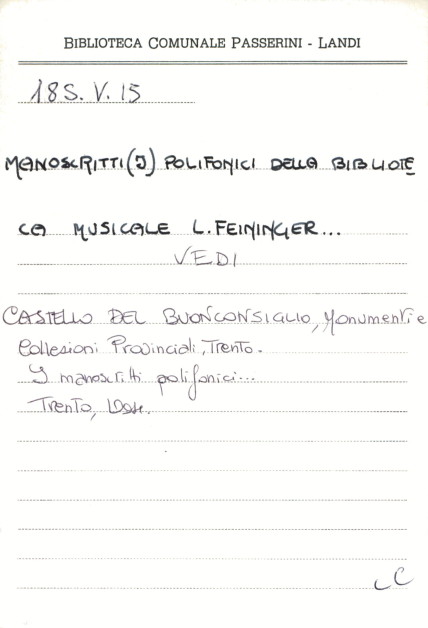 BIBLIOTECA COMUNALE PASSERINI - LANDI
18S. V. 15
MANOSCRITTI (I) POLIFONICI DELLA BIBLIOTE
CA MUSICALE L. FEININGER...
VEDI
CASTELLO DEL BUONCONSIGLIO, Monumenti e
Collezioni Provinciali, Trento.
I manoscritti polifonici...
Trento,